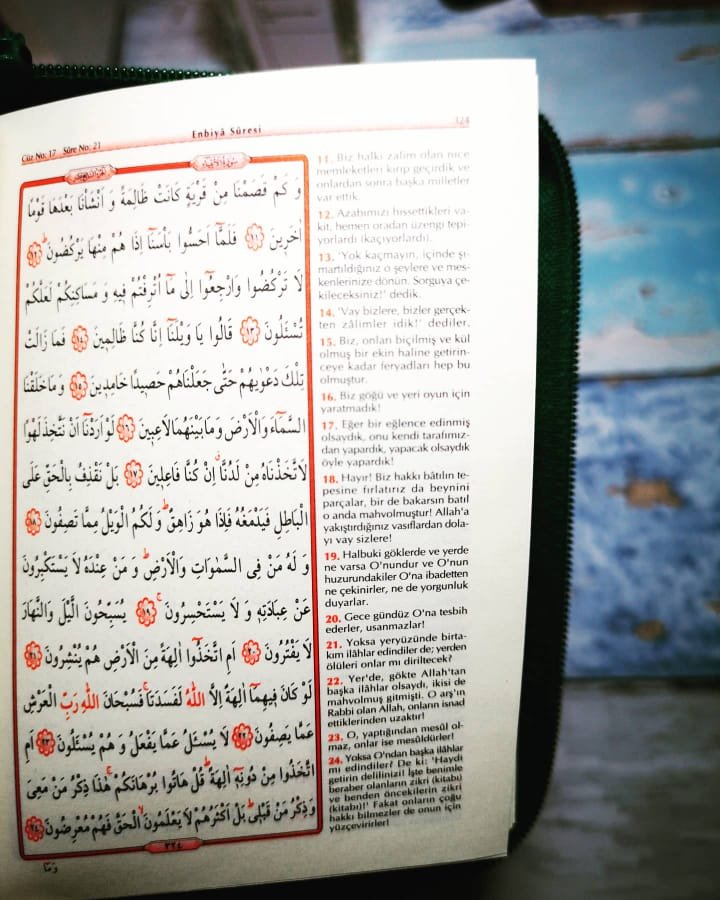 Cüz No: 17 Sûre No: 21 Enbiyâ Sûresi 324
وَ كَمْ قَصَمْنَا مِنْ قَرْيَةٍ كَانَتْ ظَالِمَةً وَ اَنْشَأْنَا بَعْدَهَا قَوْمًا
اٰخَرِينَ ﴿١١﴾ فَلَمَّٓا اَحَسُّوا بَأْسَنَٓا اِذَا هُمْ مِنْهَا يَرْكُضُونَ ﴿١٢﴾
لَا تَرْكُضُوا وَارْجِعُٓوا اِلٰى مَٓا اُتْرِفْتُمْ فِيهِ وَ مَسَاكِنِكُمْ لَعَلَّكُمْ
تُسْـَٔلُونَ ﴿١٣﴾ قَالُوا يَا وَيْلَنَٓا اِنَّا كُنَّا ظَالِمِينَ ﴿١٤﴾ فَمَا زَالَتْ
تِلْكَ دَعْوٰيهُمْ حَتّٰى جَعَلْنَاهُمْ حَصِيدًا خَامِدِينَ ﴿١٥﴾ وَ مَا خَلَقْنَا
السَّمَٓاءَ وَالْاَرْضَ وَ مَا بَيْنَهُمَا لَاعِبِينَ ﴿١٦﴾ لَوْ اَرَدْنَٓا اَنْ نَتَّخِذَ لَهْوًا
لَاتَّخَذْنَاهُ مِنْ لَدُنَّا اِنْ كُنَّا فَاعِلِينَ ﴿١٧﴾ بَلْ نَقْذِفُ بِالْحَقِّ عَلَى
الْبَاطِلِ فَيَدْمَغُهُ فَاِذَا هُوَ زَاهِقٌ وَ لَكُمُ الْوَيْلُ مِمَّا تَصِفُونَ ﴿١٨﴾
وَ لَهُ مَنْ فِى السَّمٰوَاتِ وَالْاَرْضِ وَ مَنْ عِنْدَهُ لَا يَسْتَكْبِرُونَ
عَنْ عِبَادَتِهِ وَ لَا يَسْتَحْسِرُونَ ﴿١٩﴾ يُسَبِّحُونَ الَّيْلَ وَالنَّهَارَ
لَا يَفْتُرُونَ ﴿٢٠﴾ اَمِ اتَّخَذُٓوا اٰلِهَةً مِنَ الْاَرْضِ هُمْ يُنْشِرُونَ ﴿٢١﴾
لَوْ كَانَ فِيهِمَٓا اٰلِهَةٌ اِلَّا اللّٰهُ لَفَسَدَتَا فَسُبْحَانَ اللّٰهِ رَبِّ الْعَرْشِ
عَمَّا يَصِفُونَ ﴿٢٢﴾ لَا يُسْـَٔلُ عَمَّا يَفْعَلُ وَ هُمْ يُسْـَٔلُونَ ﴿٢٣﴾ اَمِ
اتَّخَذُوا مِنْ دُونِهِٓ اٰلِهَةً قُلْ هَاتُوا بُرْهَانَكُمْ هٰذَا ذِكْرُ مَنْ مَعِىَ
وَ ذِكْرُ مَنْ قَبْلِى بَلْ اَكْثَرُهُمْ لَا يَعْلَمُونَ الْحَقَّ فَهُمْ مُعْرِضُونَ ﴿٢٤﴾
٣٢٤
وَمَا
11. Biz halkı zalim olan nice
memleketleri kırıp geçirdik ve
onlardan sonra başka milletler
var ettik.
12. Azabımızı hissettikleri va-
kit, hemen oradan üzengi tepi-
yorlardı (kaçıyorlardı).
13. 'Yok kaçmayın, içinde şı-
martıldığınız o şeylere ve mes-
kenlerinize dönün. Sorguya çe-
kileceksiniz!' dedik.
14. 'Vay bizlere, bizler gerçek-
ten zâlimler idik!' dediler.
15. Biz, onları biçilmiş ve kül
olmuş bir ekin haline getirin-
ceye kadar feryadları hep bu
olmuştur.
16. Biz göğü ve yeri oyun için
yaratmadık!
17. Eğer bir eğlence edinmiş
olsaydık, onu kendi tarafımız-
dan yapardık, yapacak olsaydık
öyle yapardık!
18. Hayır! Biz hakkı bâtılın te-
pesine fırlatırız da beynini
parçalar, bir de bakarsın batıl
o anda mahvolmuştur! Allah'a
yakıştırdığınız vasıflardan dola-
yı vay sizlere!
19. Halbuki göklerde ve yerde
ne varsa O'nundur ve O'nun
huzurundakiler O'na ibadetten
ne çekinirler, ne de yorgunluk
duyarlar.
20. Gece gündüz O'na tesbih
ederler, usanmazlar!
21. Yoksa yeryüzünde birta-
kım ilâhlar edindiler de; yerden
ölüleri onlar mı diriltecek?
22. Yer'de, gökte Allah'tan
başka ilâhlar olsaydı, ikisi de
mahvolmuş gitmişti. O arş'ın
Rabbi olan Allah, onların isnad
ettiklerinden uzaktır!
23. O, yaptığından mesûl ol-
maz, onlar ise mesûldürler!
24. Yoksa O'ndan başka ilâhlar
mı edindiler? De ki: 'Haydi
getirin delilinizi! İşte benimle
beraber olanların zikri (kitabı)
ve benden öncekilerin zikri
(kitabı)!' Fakat onların çoğu
hakkı bilmezler de onun için
yüzçevirirler!